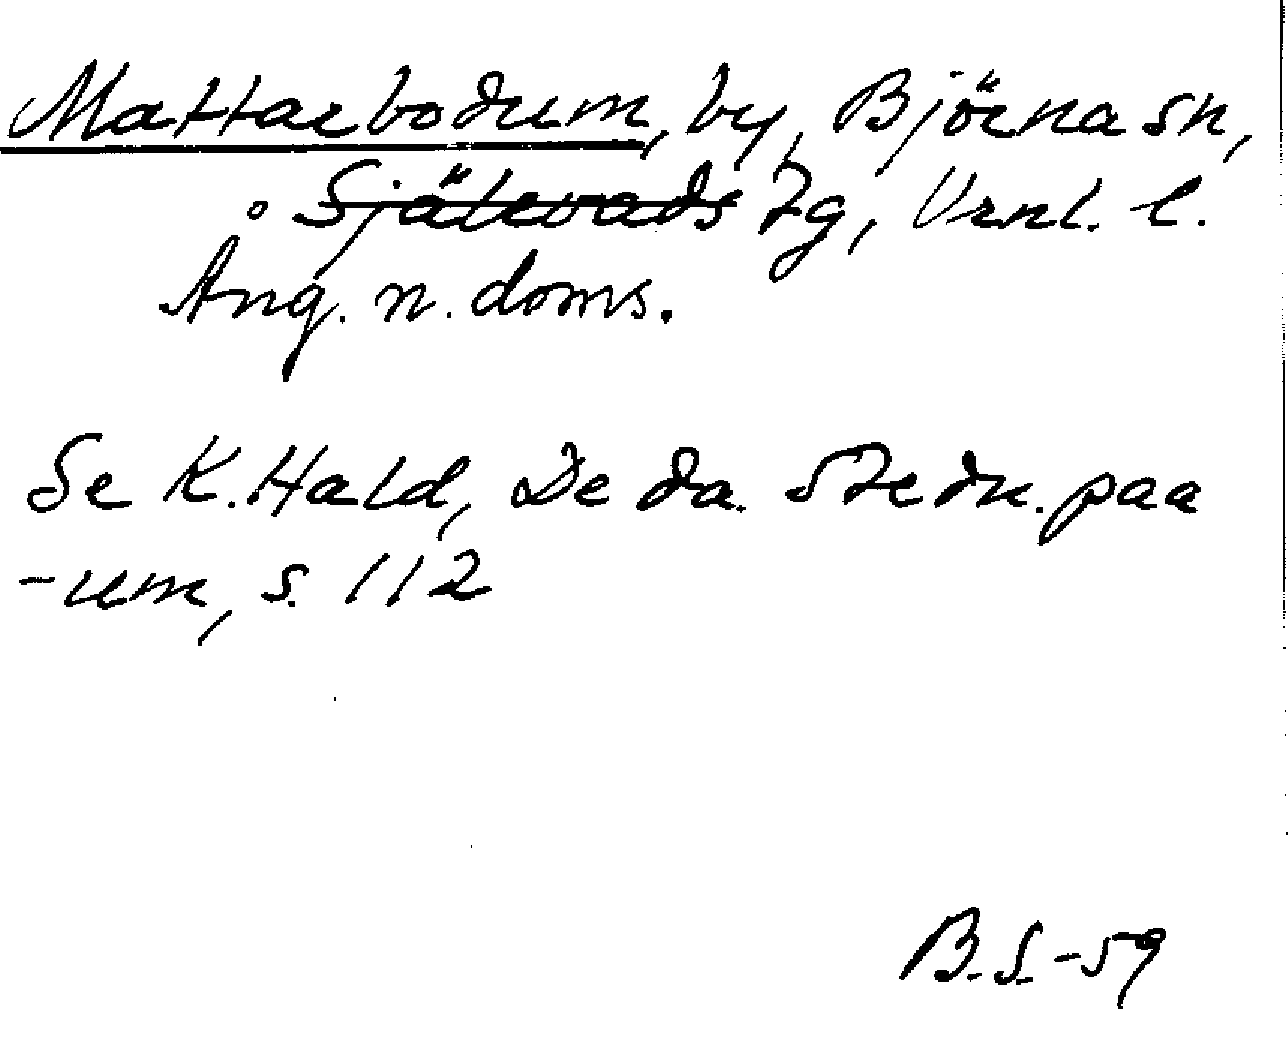 Mattarbodum, by, Björna sn,
Själevads tg, Vrnl. l.
Ång. n. doms.
Se K. Hald, De da. Stedn. paa
-um, s. 112
B.S. -59